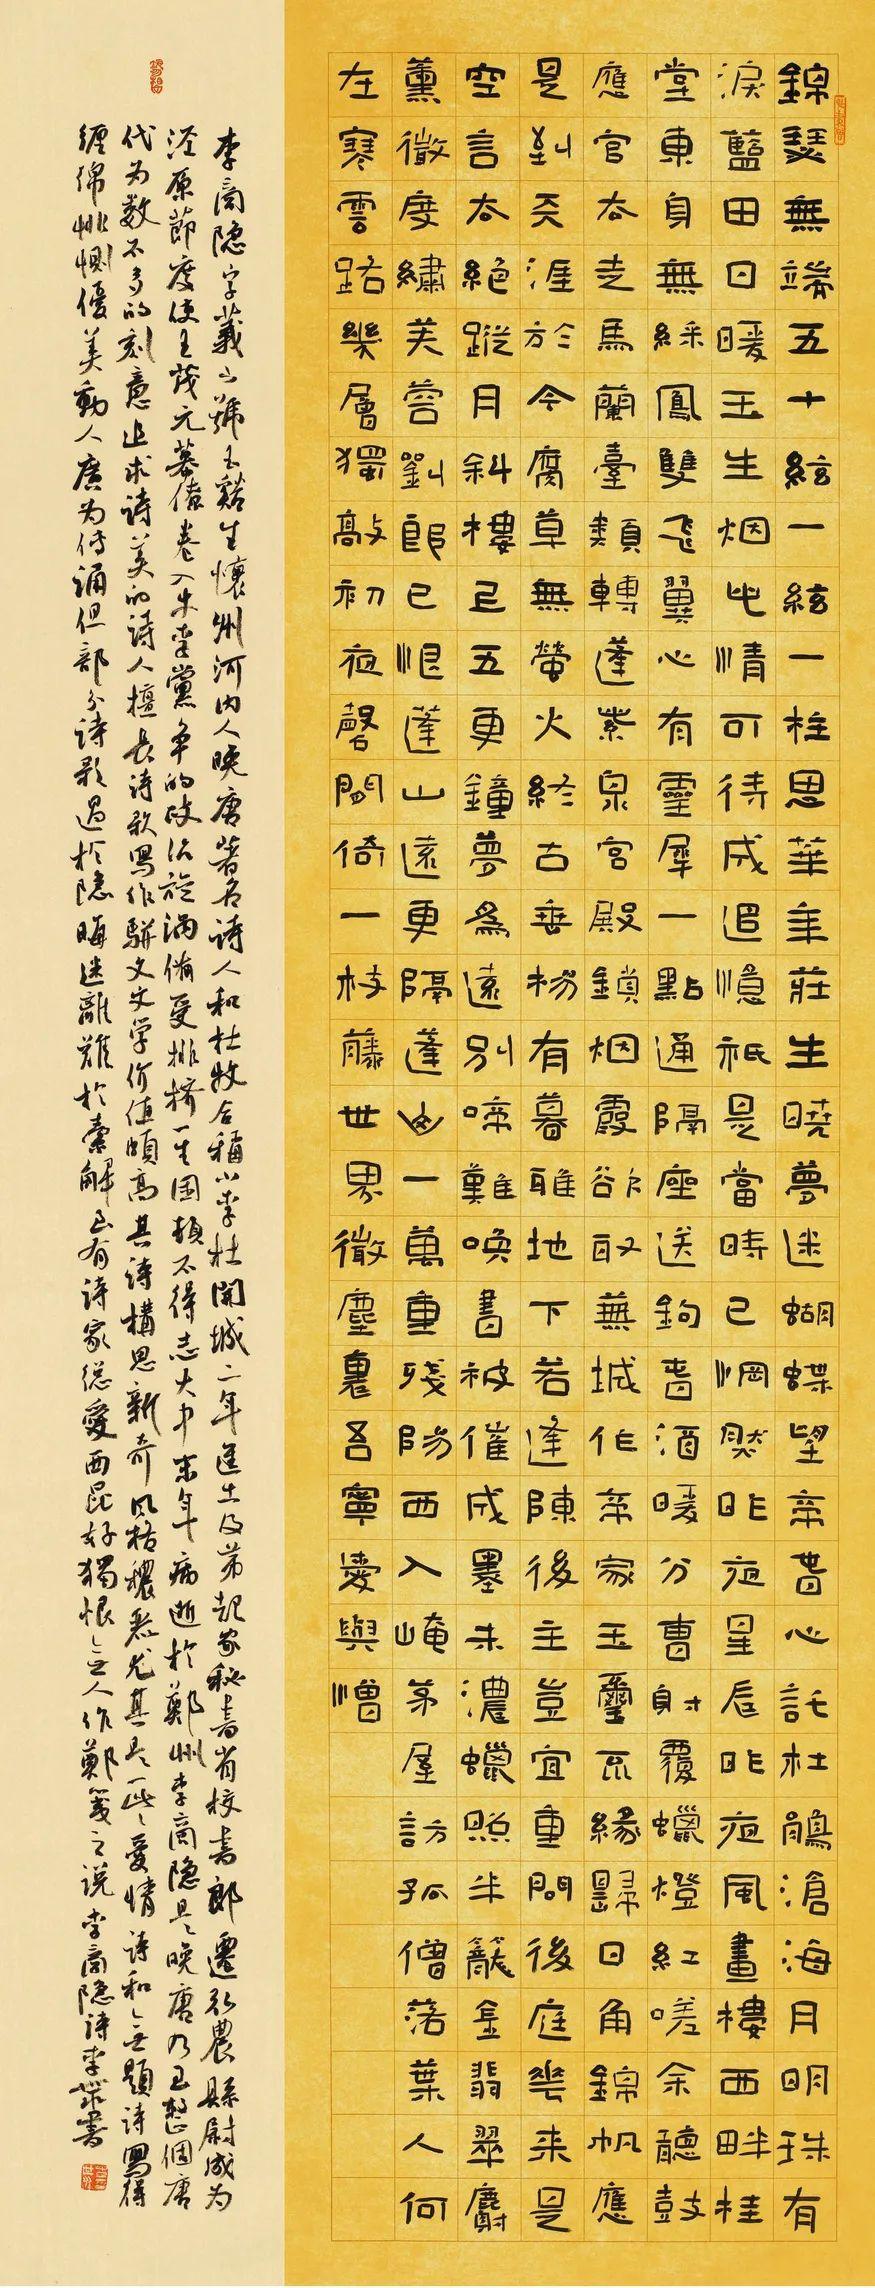 錦瑟無端五十絃一絃一柱思華年莊生曉夢迷蝴蝶望帝春心託杜鵑滄海月明珠有
淚藍田日暖玉生烟此情可待成追憶祇是當時已惘然昨夜星辰昨夜風畫樓西畔桂
堂東身無綵鳳雙飛翼心有靈犀一點通隔座送鉤春酒暖分曹射覆蠟燈紅嗟余聽鼓
應官去走馬蘭臺類轉蓬紫泉宮殿鎖烟霞欲取蕪城作帝家玉璽不緣歸日角錦帆應
是到天涯於今腐草無螢火終古垂楊有暮鴉地下若逢陳後主豈宜重問後庭花来是
空言去絕蹤月斜樓上五更鐘夢為遠別啼難喚書被催成墨未濃蠟照半籠金翡翠麝
薰微度繡芙蓉劉郎已恨蓬山遠更隔蓬山一萬重殘陽西入崦茅屋訪孤僧落葉人何
在寒雲路幾層獨敲初夜磬閒倚一枝藤世界微塵裏吾寧愛與憎
李商隐字義山號玉谿生懷州河内人晚唐著名诗人和杜牧合稱小李杜開城二年進士及第起家秘書省校書郎遷弘農縣尉成为
泾原節度使王茂元幕僚卷入牛李黨争的政治旋涡備受排擠一生困頓不得志大中末年病逝於鄭州李商隐是晚唐乃至整個唐
代为數不多的刻意追求诗美的诗人擅長诗歌寫作駢文文学价值頗高其诗構思新奇風格穠麗尤其是一些爱情诗和无題诗寫得
缠绵悱恻優美動人廣为传诵但部分诗歌過於隐晦迷離難於索解至有诗家總愛西昆好獨恨无人作鄭箋之说李商隐诗李書